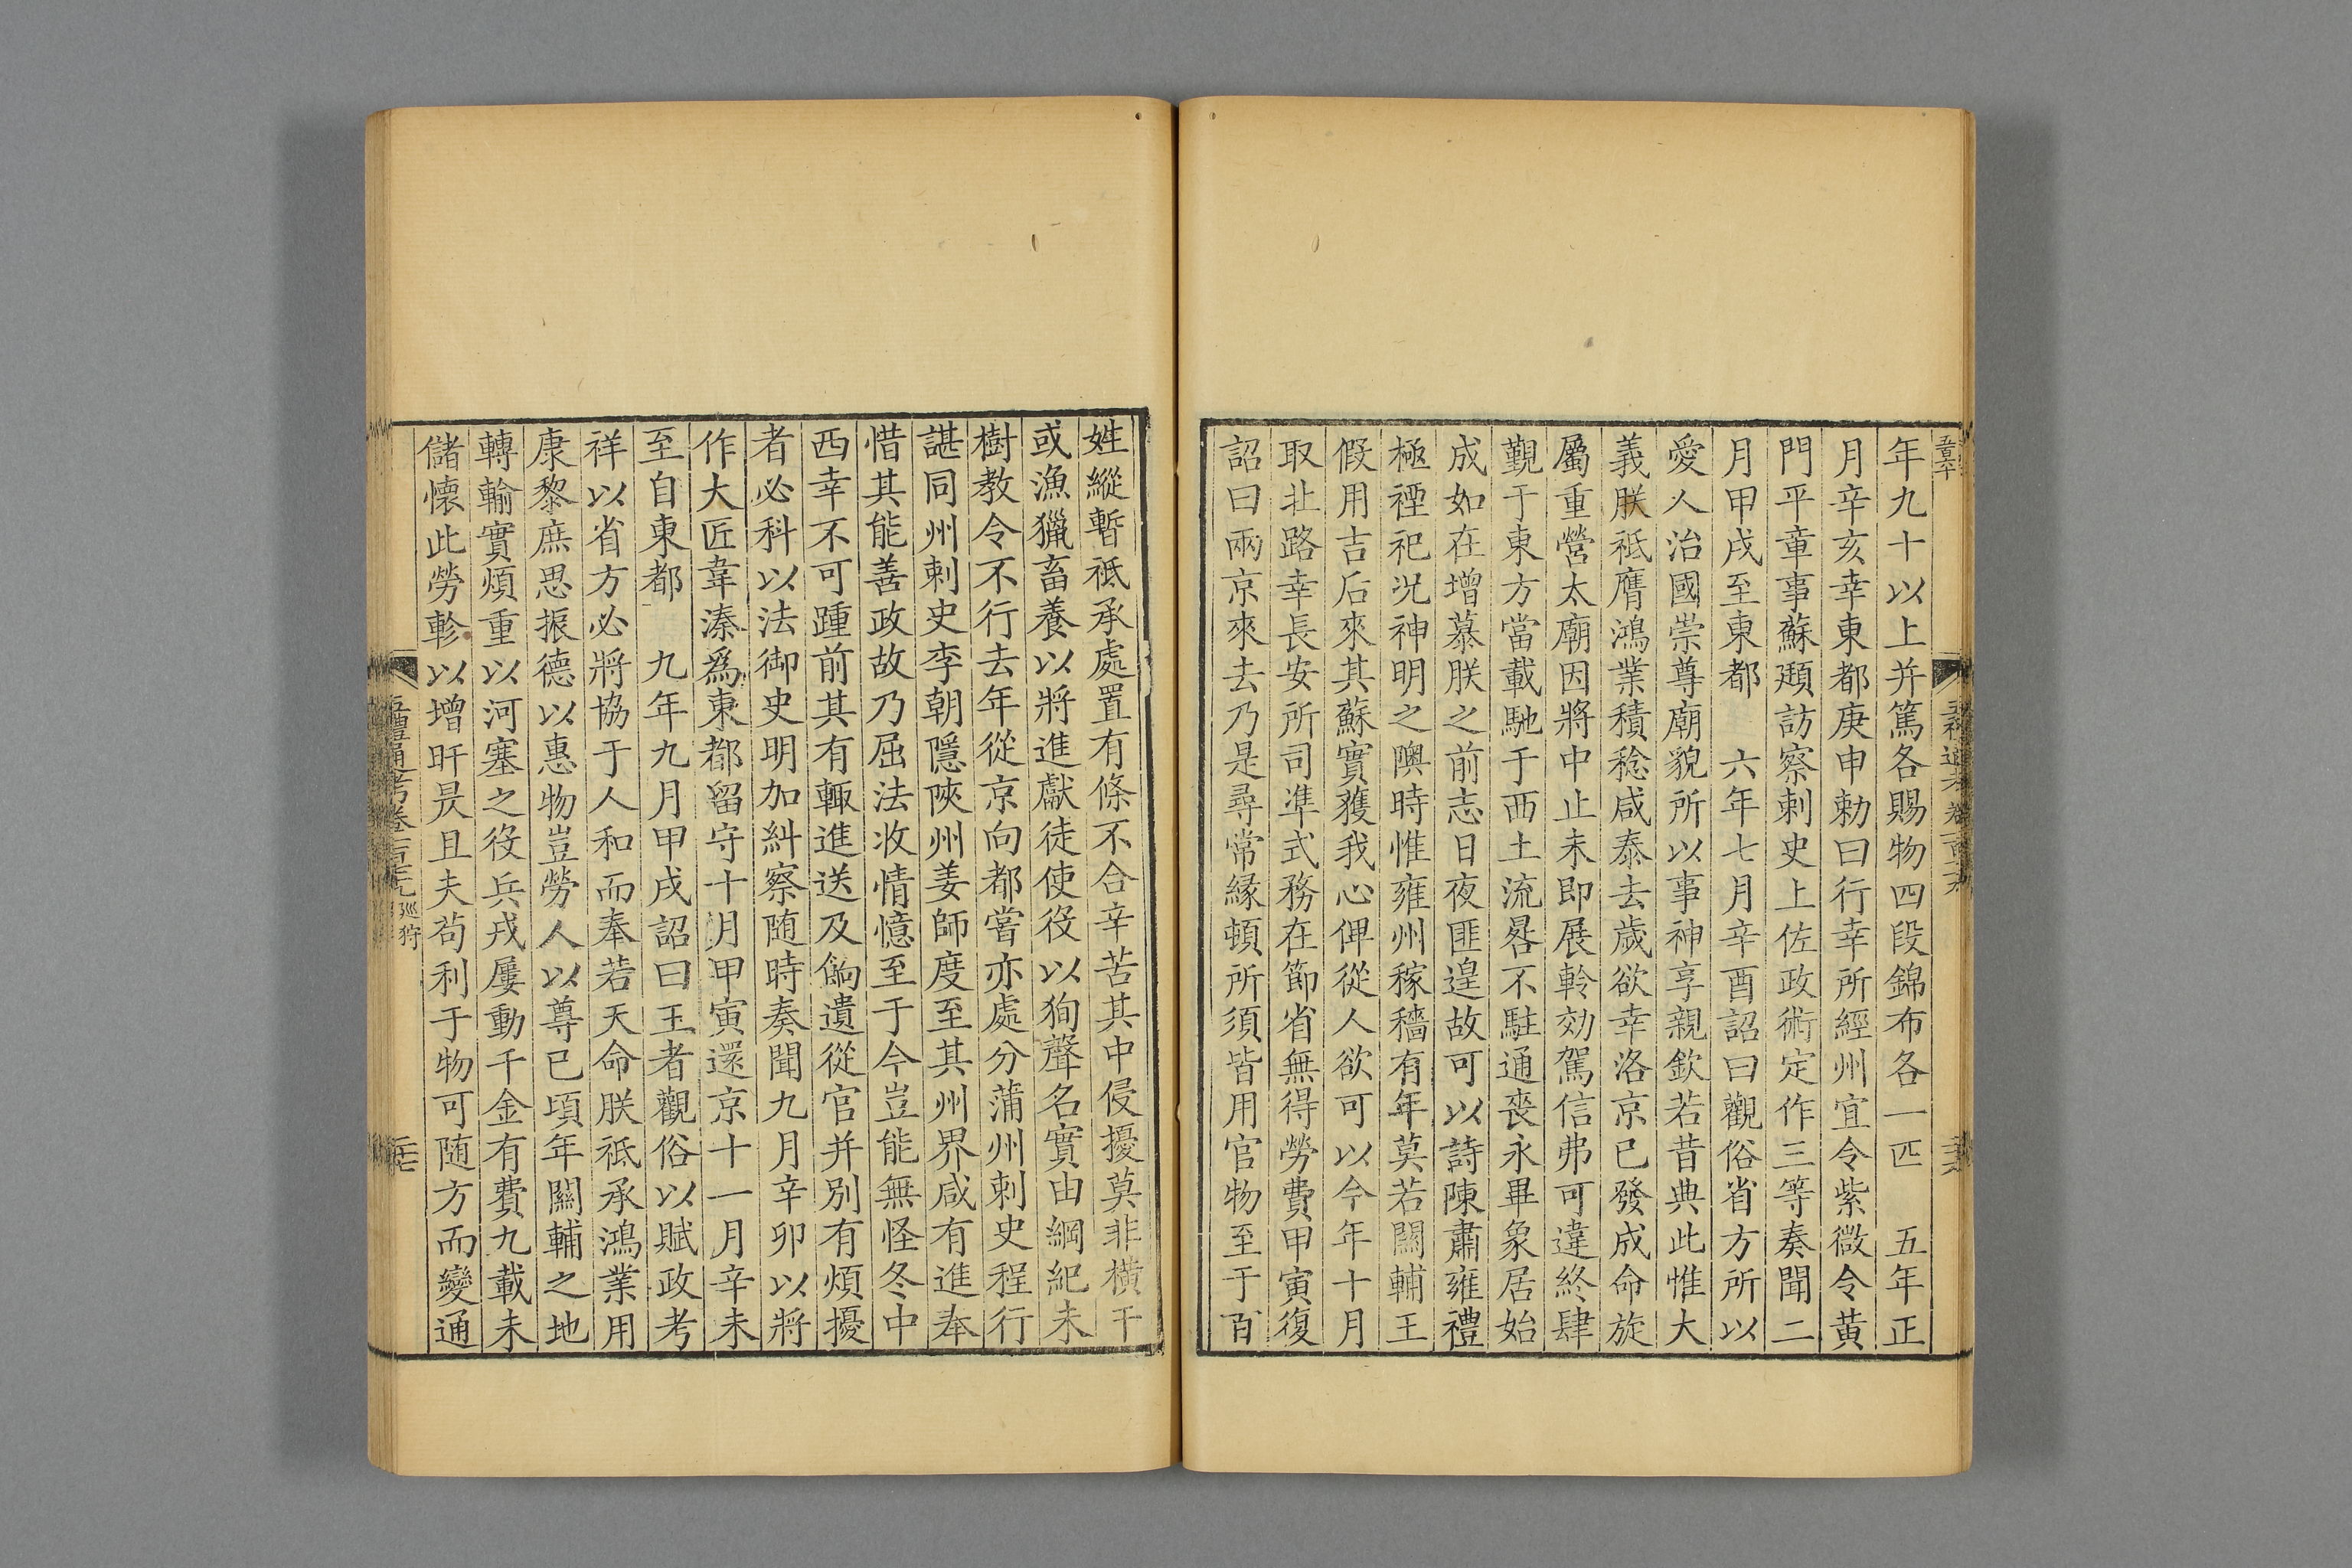 年九十以上并篤各賜物四段錦布各一匹　五年正
月辛亥幸東都庚申勅曰行幸所經州宜令紫微令黄
門平章事蘇頲訪察刺史上佐政術定作三等奏聞二
月甲戌至東都　六年七月辛酉詔曰觀俗省方所以
愛人治國崇尊廟貌所以事神享親欽若昔典此惟大
義朕祗膺鴻業積稔咸泰去歲欲幸洛京已發成命旋
屬重營太廟因將中止未即展軨効駕信弗可違終肆
覲于東方當載馳于西土流晷不駐通喪永畢象居始
成如在增慕朕之前志日夜匪遑故可以詩陳肅雍禮
極禋祀況神明之隩時惟雍州稼穡有年莫若關輔王
假用吉后來其蘇實獲我心俾從人欲可以今年十月
取北路幸長安所司準式務在節省無得勞費甲寅復
詔曰兩京來去乃是尋常縁頓所須皆用官物至于百
姓縱暫祗承處置有條不合辛苦其中侵擾莫非橫干
或漁獵畜養以將進獻徒使役以狥聲名實由綱紀未
樹教令不行去年從京向都嘗亦處分蒲州刺史程行
諶同州刺史李朝隱陝州姜師度至其州界咸有進奉
惜其能善政故乃屈法收情憶至于今豈能無怪冬中
西幸不可踵前其有輙進送及餉遺從官并別有煩擾
者必科以法御史明加糾察随時奏聞九月辛卯以將
作大匠韋湊爲東都留守十月甲寅還京十一月辛未
至自東都　九年九月甲戌詔曰王者觀俗以賦政考
祥以省方必將協于人和而奉若天命朕祗承鴻業用
康黎庶思振德以惠物豈勞人以尊已頃年關輔之地
轉輸實煩重以河塞之役兵戎屢動千金有費九載未
儲懷此勞軫以增旰昃且夫苟利于物可随方而變通
五禮通考卷一百七十九 巡狩